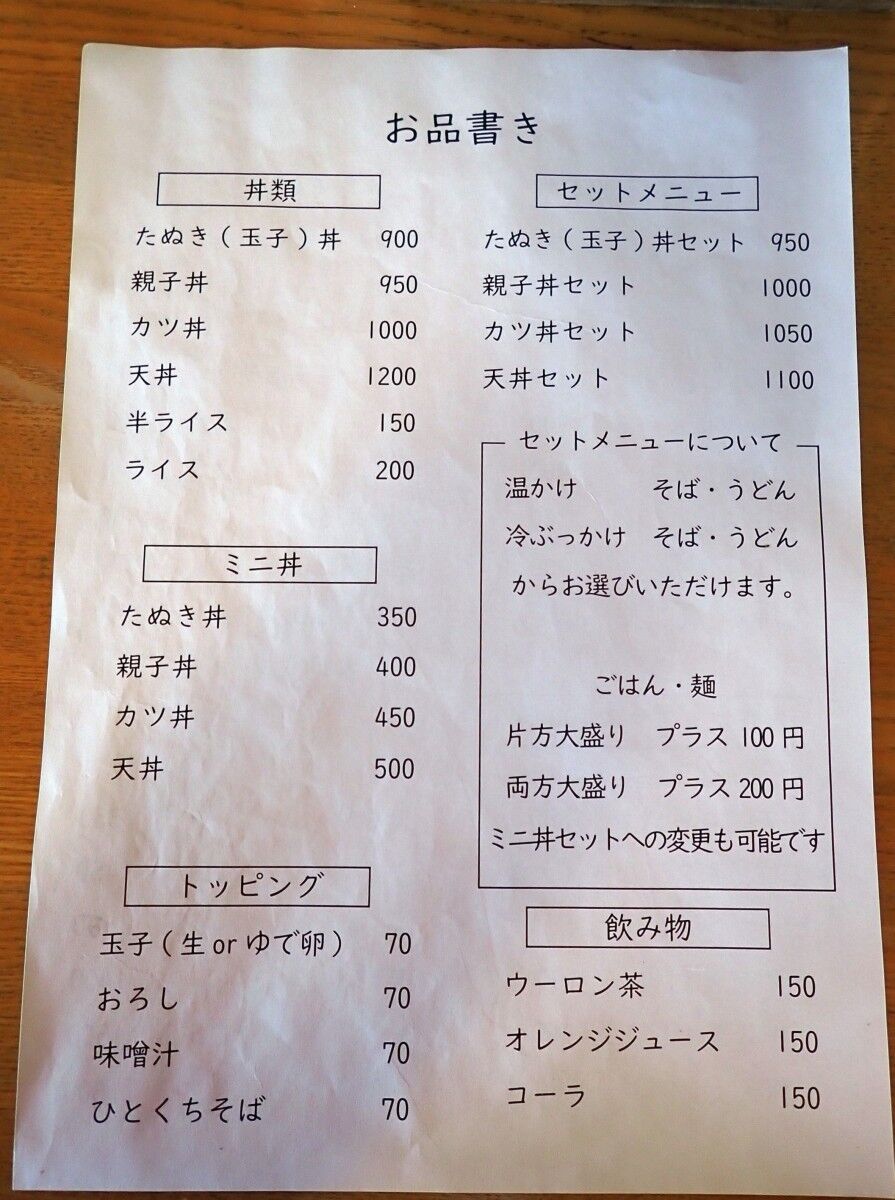 お品書き
丼類
たぬき(玉子)丼 900
親子丼 950
カツ丼 1000
天丼 1200
半ライス 150
ライス 200
ミニ丼
たぬき丼 350
親子丼 400
カツ丼 450
天丼 500
トッピング
玉子(生orゆで卵) 70
おろし 70
味噌汁 70
ひとくちそば 70
セットメニュー
たぬき(玉子)丼セット 950
親子丼セット 1000
カツ丼セット 1050
天丼セット 1100
セットメニューについて
温かけ そば・うどん
冷ぶっかけ そば・うどん
からお選びいただけます。
ごはん・麺
片方大盛り プラス100円
両方大盛り プラス200円
ミニ丼セットへの変更も可能です
飲み物
ウーロン茶 150
オレンジジュース 150
コーラ 150